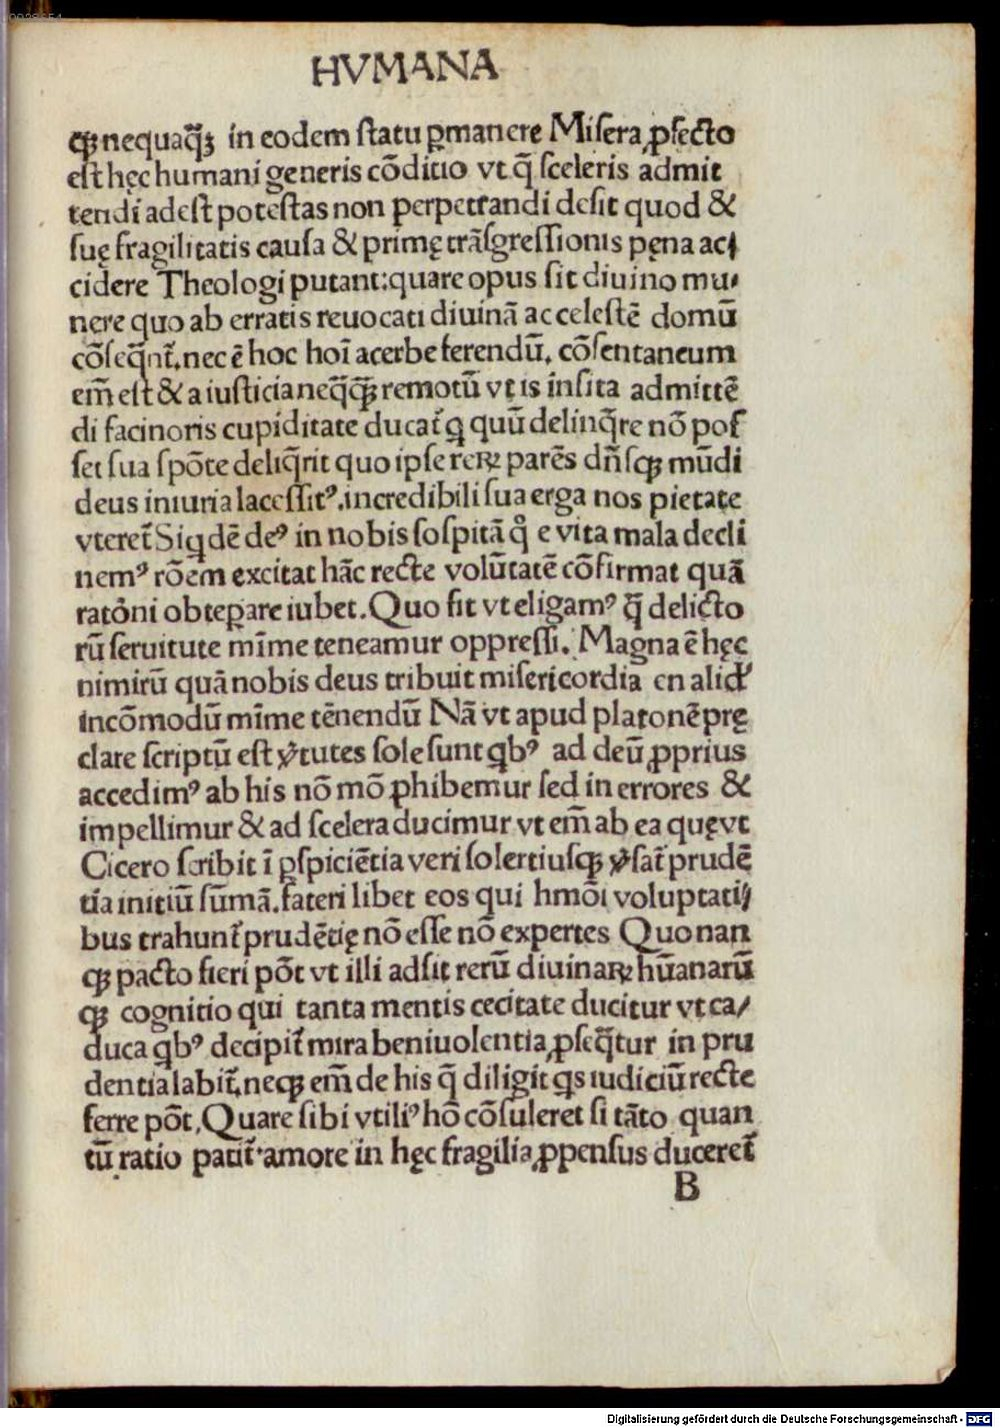 HVMANA
qꝫ nequaq̃ꝫ in eodem ſtatu ꝑmanere Miſera ꝓfecto
eſt hęc humani generis cõditio vt q̃ ſceleris admit
tendi adeſt poteſtas non perpetrandi deſit quod &
ſuę fragilitatis cauſa & primę trãſgreſſionis pęna ac/
cidere Theologi putant: quare opus ſit diuino mu/
nere quo ab erratis reuocati diuinã ac celeſtẽ domũ
cõſeq̃nt᷑. nec ẽ hoc hoĩ acerbe ferendũ. cõſentaneum
em̃ eſt & a iuſticia neq̃qꝫ remotũ vt is inſita admittẽ
di facinoris cupiditate ducat᷑ ꝗ quũ delinq̃re nõ poſ
ſet ſua ſpõte deliq̃rit quo ipſe reꝝ parẽs dñſqꝫ mũdi
deus iniuria laceſſitꝰ. incredibili ſua erga nos pietate
vteret᷑ Siꝗdẽ deꝰ in nobis ſoſpitã qͦ e vita mala decli
nemꝰ rõem excitat hãc recte volũtatẽ cõfirmat quã
ratõni obtẽꝑare iubet. Quo fit vt eligamꝰ q̃ delicto
rũ ſeruitute mĩme teneamur oppreſſi. Magna ẽ hęc
nimirũ quã nobis deus tribuit miſericordia en aliď
incõmodũ mĩme tẽnendũ Nã vt apud platonẽ prę
clare ſcriptũ eſt v̓tutes ſole ſunt ꝗbꝰ ad deũ ꝓprius
accedimꝰ ab his nõ mõ ꝓhibemur ſed in errores &
impellimur & ad ſcelera ducimur vt em̃ ab ea quę vt
Cicero ſcribit ĩ ꝑſpiciẽtia veri ſolertiuſqꝫ v̓ſat᷑ prudẽ
tia initiũ ſũmã. fateri libet eos qui hmõi voluptati/
bus trahunt᷑ prudẽtię nõ eſſe nõ expertes Quo nan
qꝫ pacto fieri põt vt illi adſit rerũ diuinaꝝ hũanarũ
qꝫ cognitio qui tanta mentis cecitate ducitur vt ca/
duca ꝗbꝰ decipit᷑ mira beniuolentia ꝓſeq̃tur in pru
dentia labit᷑. neqꝫ em̃ de his q̃ diligit ꝗs iudiciũ recte
ferre põt. Quare ſibi vtiliꝰ hõ cõſuleret ſi tãto quan
tũ ratio patit᷑ amore in hęc fragilia ꝓpenſus duceret᷑
B
Digitalisierung gefördert durch die Deutsche Forschungsgemeinschaft - DFG